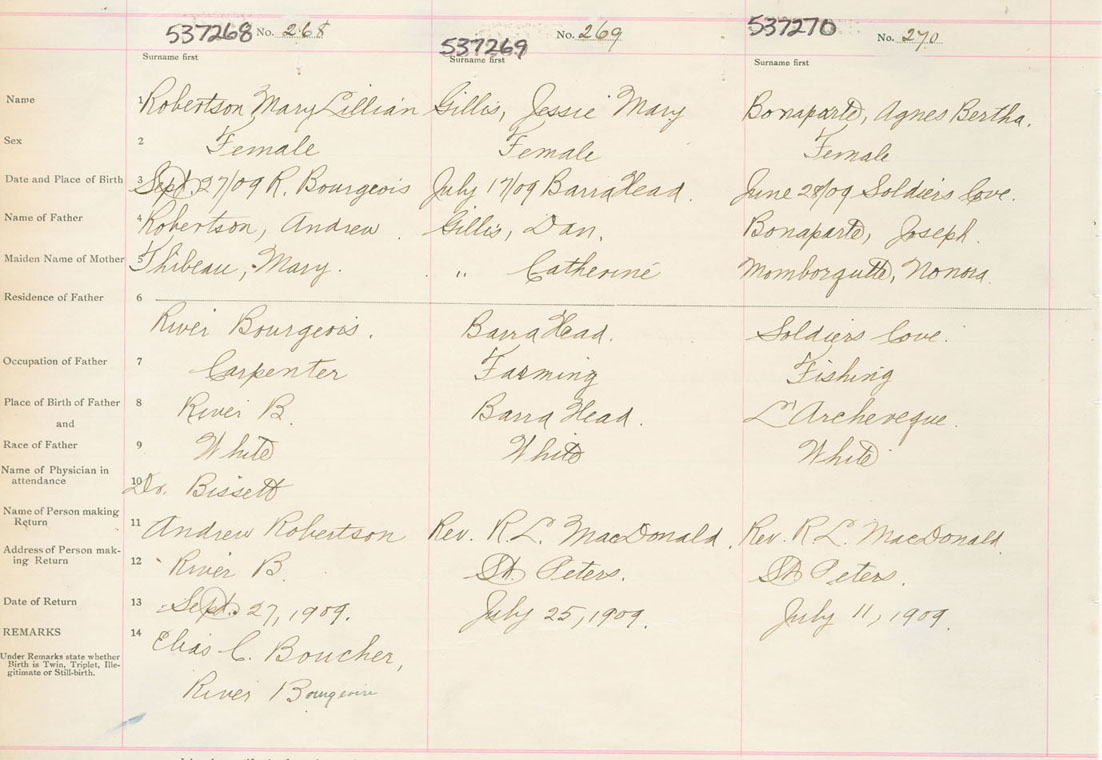 537268 No. 268 537269 No. 269 537270 No. 270
Surname first Surname first Surname first
Name 1 Robertson Mary Lillian Gillis, Jessie Mary Bonaparte, Agnes Bertha.
Sex 2 Female Female Female
Date and Place of Birth 3 Sept. 27/09 R. Bourgeois July 17/09 Barra Head. June 28/09 Soldiers Cove.
Name of Father 4 Robertson, Andrew. Gillis, Dan. Bonaparte, Joseph.
Maiden Name of Mother 5 Thibeau, Mary. " Catherine Momborquette, Nonora.
Residence of Father 6
River Bourgeois. Barra Head. Soldiers Cove.
Occupation of Father 7 Carpenter Farming Fishing
Place of Birth of Father 8 River B. Barra Head. L'Archeveque.
and
Race of Father 9 White White White
Name of Physician in
attendance 10 Dr. Bissett
Name of Person making
Return 11 Andrew Robertson Rev. R L. MacDonald. Rev. R L. MacDonald.
Address of Person mak-
ing Return 12 River B. St. Peters. St Peters.
Date of Return 13 Sept. 27, 1909. July 25, 1909. July 11, 1909.
REMARKS 14 Elias C. Boucher,
Under Remarks state whether
Birth is Twin, Triplet, Ille-
gitimate or Still-birth.
River Bourgeois